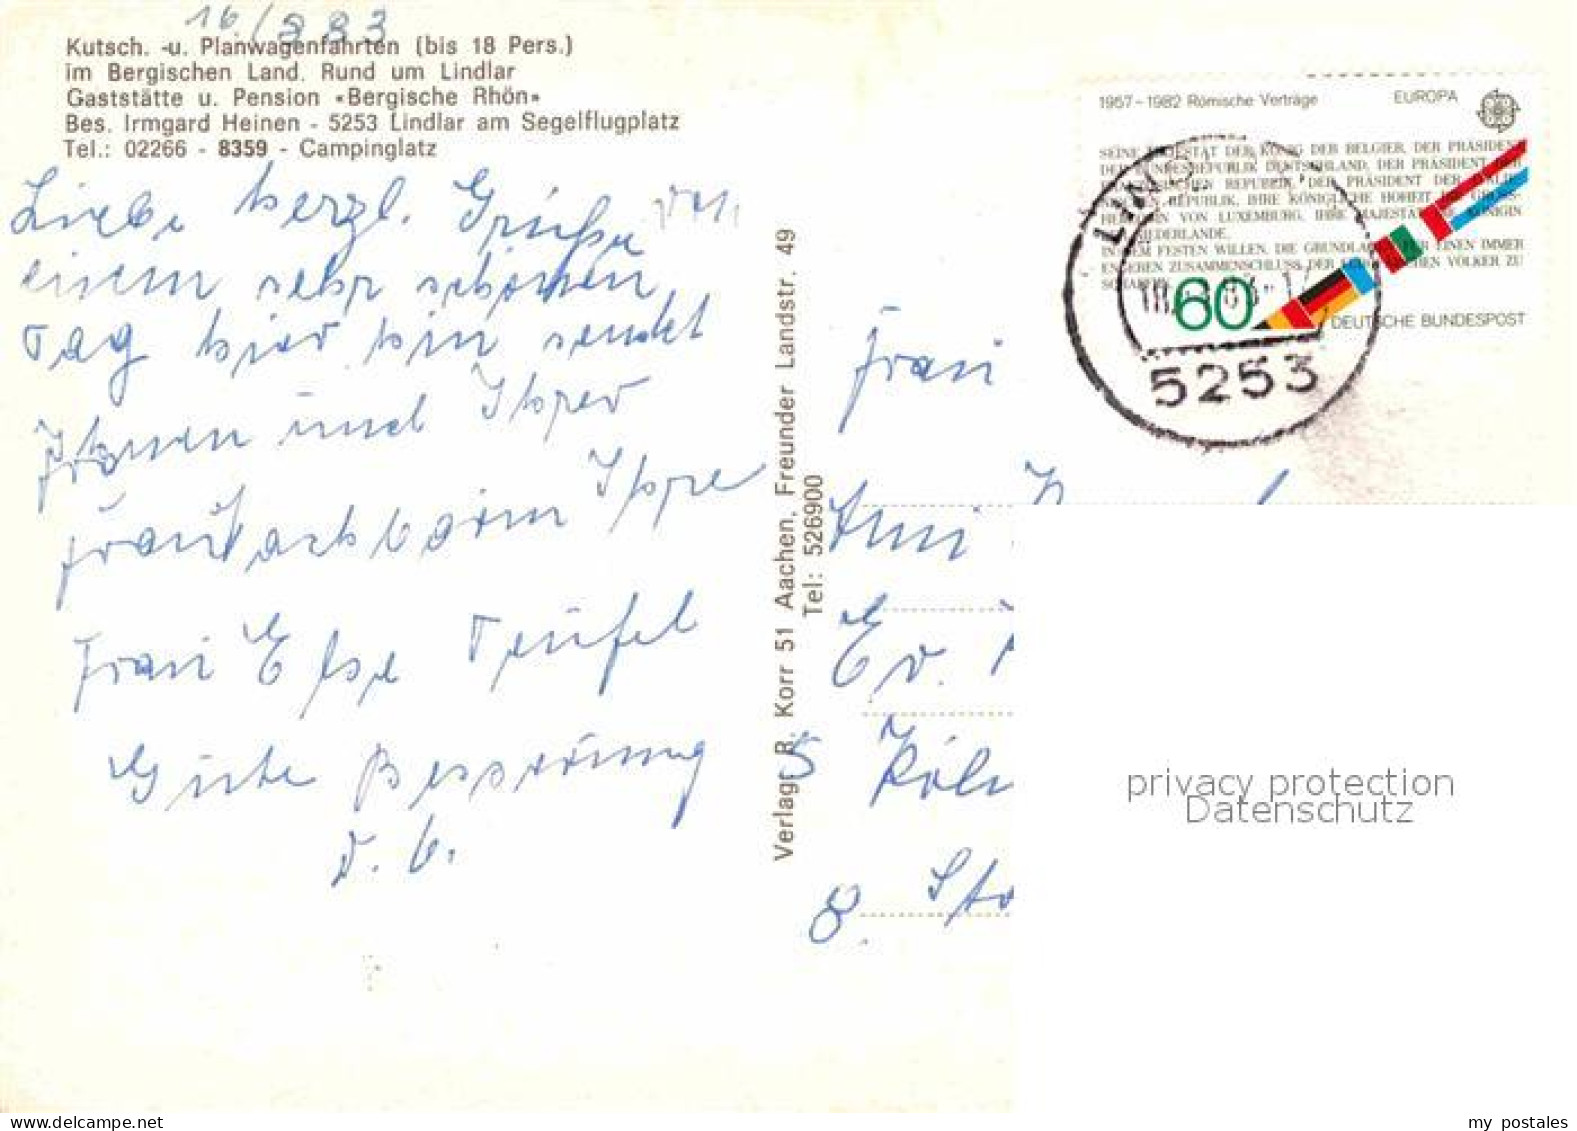 16./883
Kutsch. -u. Planwagenfahrten (bis 18 Pers.)
im Bergischen Land. Rund um Lindlar
Gaststätte u. Pension «Bergische Rhön»
Bes. Irmgard Heinen - 5253 Lindlar am Segelflugplatz
Tel.: 02266 - 8359 - Campinglatz
Liebe herzl. Grüße von
einem sehr schönen
Tag hier hin sendet
Ihnen und Ihrer
Ihre
Frau Else Teufel
Gute Besserung
Verlag: R. Korr 51 Aachen, Freunder Landstr. 49
Tel: 526900
1957-1982 Römische Verträge EUROPA
SEINE MAJESTÄT DER KÖNIG DER BELGIER, DER PRÄSIDENT
DER BUNDESREPUBLIK DEUTSCHLAND, DER PRÄSIDENT DER
FRANZÖSISCHEN REPUBLIK, DER PRÄSIDENT DER ITALIE-
NISCHEN REPUBLIK, IHRE KÖNIGLICHE HOHEIT DIE GROSS-
HERZOGIN VON LUXEMBURG, IHRE MAJESTÄT DIE KÖNIGIN
DER NIEDERLANDE,
IN DEM FESTEN WILLEN, DIE GRUNDLAGEN FÜR EINEN IMMER
ENGEREN ZUSAMMENSCHLUSS DER EUROPÄISCHEN VÖLKER ZU
SCHAFFEN,
60
DEUTSCHE BUNDESPOST
LIN
5253
Frau
Ev.
5 Köln
8. Str
privacy protection
Datenschutz
my postales